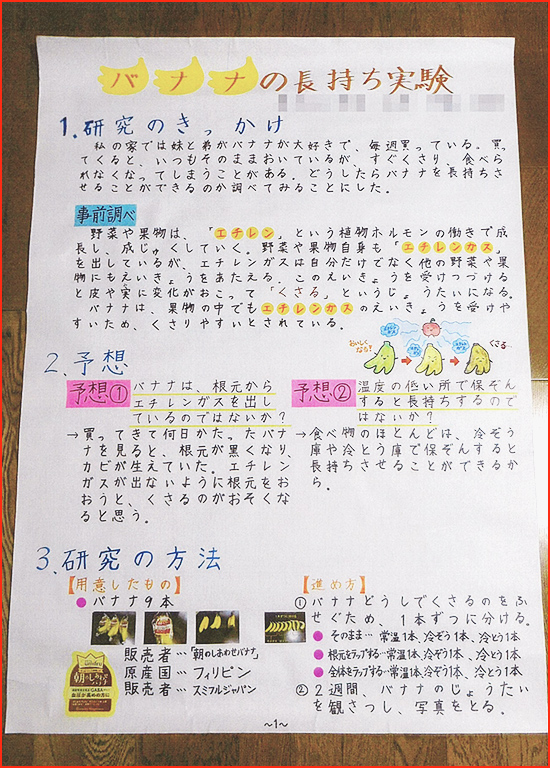 バナナの長持ち実験
1.研究のきっかけ
私の家では妹と弟がバナナが大好きで、毎週買っている。買っ
てくると、いつもそのままおいているが、すぐくさり、食べら
れなくなってしまうことがある。どうしたらバナナを長持ちさ
せることができるのか調べてみることにした。
事前調べ
野菜や果物は、「エチレン」という植物ホルモンの働きで成
長し、成じゅくしていく。野菜や果物自身も「エチレンガス」
を出しているが、エチレンガスは自分だけでなく他の野菜や果
物にもえいきょうをあたえる。このえいきょうを受けつづける
と皮や実に変化がおこって「くさる」というじょうたいになる。
バナナは、果物の中でもエチレンガスのえいきょうを受けや
すいため、くさりやすいとされている。
おいしくなる!
くさる…
2.予想
予想①
バナナは、根元から
エチレンガスを出し
ているのではないか?
→買ってきて何日かたったバナ
ナを見ると、根元が黒くなり、
カビが生えていた。エチレン
ガスが出ないように根元をお
おうと、くさるのがおそくな
ると思う。
予想②
温度の低い所で保ぞん
すると長持ちするので
はないか?
→食べ物のほとんどは、冷ぞう
庫や冷とう庫で保ぞんすると
長持ちさせることができるか
ら。
3.研究の方法
【用意したもの】
●バナナ9本
販売者…「朝のしあわせバナナ」
原産国…フィリピン
販売者…スミフルジャパン
朝のしあわせ
バナナ
GABA
【進め方】
①バナナどうしでくさるのをふ
せぐため、1本ずつに分ける。
●そのまま…常温1本、冷ぞう1本、冷とう1本
●根元をラップする…常温1本、冷ぞう1本、冷とう1本
●全体をラップする…常温1本、冷ぞう1本、冷とう1本
②2週間、バナナのじょうたい
を観さつし、写真をとる。
~1~